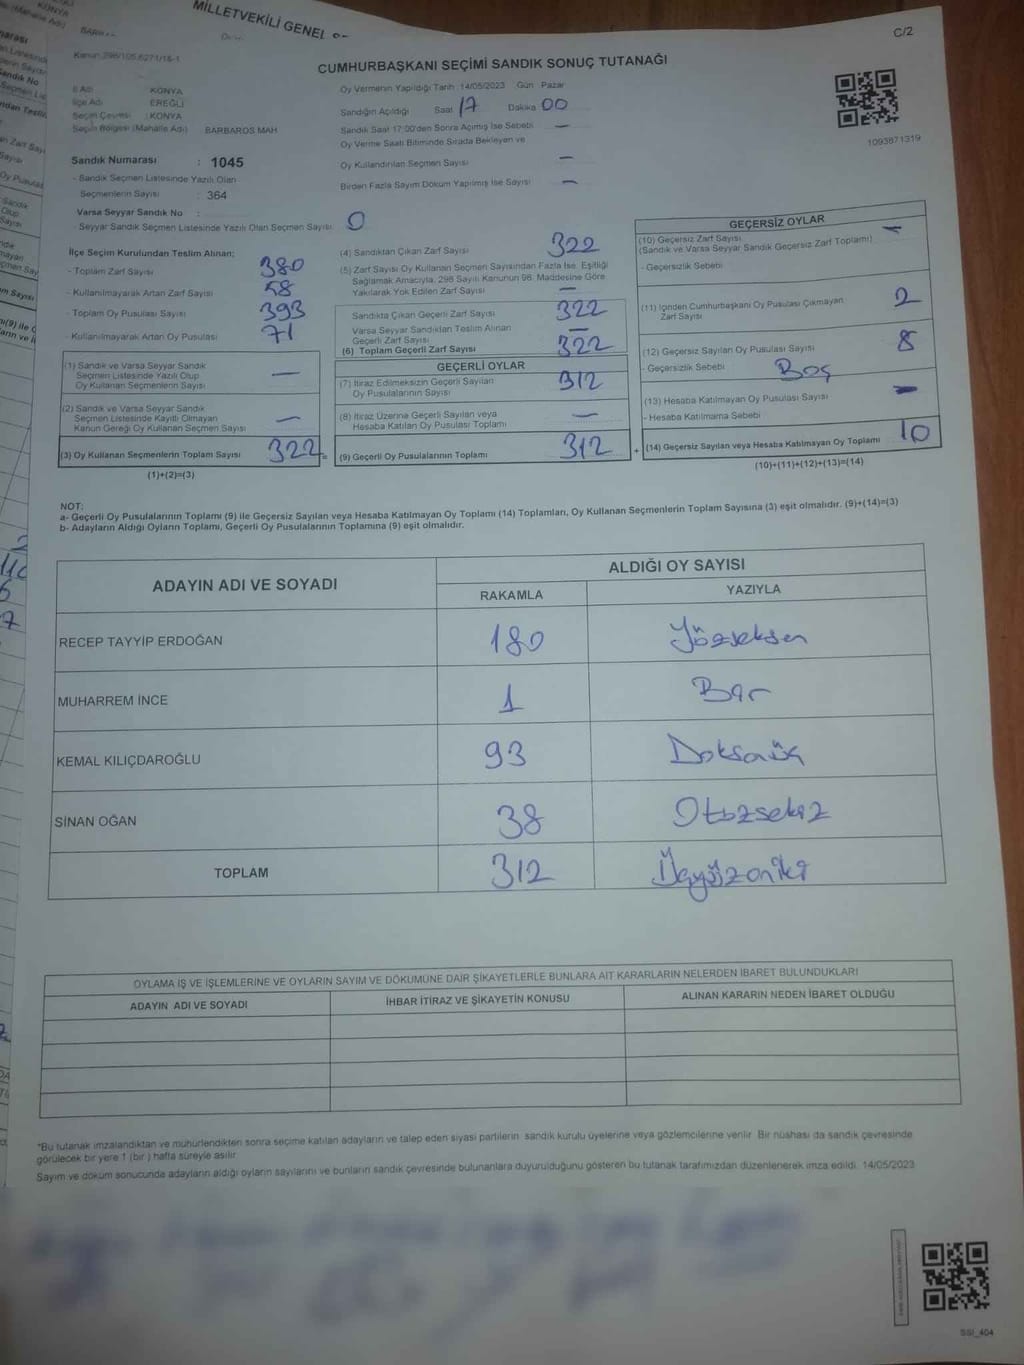 MİLLETVEKİLİ GENEL
C/2
CUMHURBAŞKANI SEÇİMİ SANDIK SONUÇ TUTANAĞI
İl Adı : KONYA
İlçe Adı : EREĞLİ
Seçim Çevresi : KONYA
Seçim Bölgesi (Mahalle Adı) BARBAROS MAH
Oy Vermenin Yapıldığı Tarih :14/05/2023 Gün Pazar
Sandığın Açıldığı Saat 17 Dakika 00
Sandık Saat 17:00'den Sonra Açımış İse Sebebi —
Oy Verme Saati Bitiminde Sırada Bekleyen ve
Oy Kullandırılan Seçmen Sayısı —
Birden Fazla Sayım Döküm Yapılmış İse Sayısı —
1093871319
Sandık Numarası : 1045
- Sandık Seçmen Listesinde Yazılı Olan
Seçmenlerin Sayısı : 364
Varsa Seyyar Sandık No :
- Seyyar Sandık Seçmen Listesinde Yazılı Olan Seçmen Sayısı 0
İlçe Seçim Kurulundan Teslim Alınan;
- Toplam Zarf Sayısı 380
- Kullanılmayarak Artan Zarf Sayısı 58
- Toplam Oy Pusulası Sayısı 393
- Kullanılmayarak Artan Oy Pusulası 71
(1) Sandık ve Varsa Seyyar Sandık
Seçmen Listesinde Yazılı Olup
Oy Kullanan Seçmenlerin Sayısı —
(2) Sandık ve Varsa Seyyar Sandık
Seçmen Listesinde Kayıtlı Olmayan
Kanun Gereği Oy Kullanan Seçmen Sayısı —
(3) Oy Kullanan Seçmenlerin Toplam Sayısı 322 =
(1)+(2)=(3)
(4) Sandıktan Çıkan Zarf Sayısı 322
(5) Zarf Sayısı Oy Kullanan Seçmen Sayısından Fazla İse, Eşitliği
Sağlamak Amacıyla, 298 Sayılı Kanunun 98. Maddesine Göre
Yakılarak Yok Edilen Zarf Sayısı —
Sandıkta Çıkan Geçerli Zarf Sayısı 322
Varsa Seyyar Sandıktan Teslim Alınan
Geçerli Zarf Sayısı —
(6) Toplam Geçerli Zarf Sayısı 322
GEÇERLİ OYLAR
(7) İtiraz Edilmeksizin Geçerli Sayılan
Oy Pusulalarının Sayısı 312
(8) İtiraz Üzerine Geçerli Sayılan veya
Hesaba Katılan Oy Pusulası Toplamı —
(9) Geçerli Oy Pusulalarının Toplamı 312 +
GEÇERSİZ OYLAR
(10) Geçersiz Zarf Sayısı —
(Sandık ve Varsa Seyyar Sandık Geçersiz Zarf Toplamı)
- Geçersizlik Sebebi
(11) İçinden Cumhurbaşkanı Oy Pusulası Çıkmayan
Zarf Sayısı 2
(12) Geçersiz Sayılan Oy Pusulası Sayısı 8
- Geçersizlik Sebebi Boş
(13) Hesaba Katılmayan Oy Pusulası Sayısı —
- Hesaba Katılmama Sebebi
(14) Geçersiz Sayılan veya Hesaba Katılmayan Oy Toplamı 10
(10)+(11)+(12)+(13)=(14)
NOT:
a- Geçerli Oy Pusulalarının Toplamı (9) ile Geçersiz Sayılan veya Hesaba Katılmayan Oy Toplamı (14) Toplamları, Oy Kullanan Seçmenlerin Toplam Sayısına (3) eşit olmalıdır. (9)+(14)=(3)
b- Adayların Aldığı Oyların Toplamı, Geçerli Oy Pusulalarının Toplamına (9) eşit olmalıdır.
ADAYIN ADI VE SOYADI ALDIĞI OY SAYISI
RAKAMLA YAZIYLA
RECEP TAYYİP ERDOĞAN 180 Yüzseksen
MUHARREM İNCE 1 Bir
KEMAL KILIÇDAROĞLU 93 Doksanüç
SİNAN OĞAN 38 Otuzsekiz
TOPLAM 312 Üçyüzoniki
OYLAMA İŞ VE İŞLEMLERİNE VE OYLARIN SAYIM VE DÖKÜMÜNE DAİR ŞİKAYETLERLE BUNLARA AİT KARARLARIN NELERDEN İBARET BULUNDUKLARI
ADAYIN ADI VE SOYADI İHBAR İTİRAZ VE ŞİKAYETİN KONUSU ALINAN KARARIN NEDEN İBARET OLDUĞU
*Bu tutanak imzalandıktan ve mühürlendikten sonra seçime katılan adayların ve talep eden siyasi partilerin sandık kurulu üyelerine veya gözlemcilerine verilir. Bir nüshası da sandık çevresinde
görülecek bir yere 1 (bir ) hafta süreyle asılır.
Sayım ve döküm sonucunda adayların aldığı oyların sayılarını ve bunların sandık çevresinde bulunanlara duyurulduğunu gösteren bu tutanak tarafımızdan düzenlenerek imza edildi. 14/05/2023
SSI_404